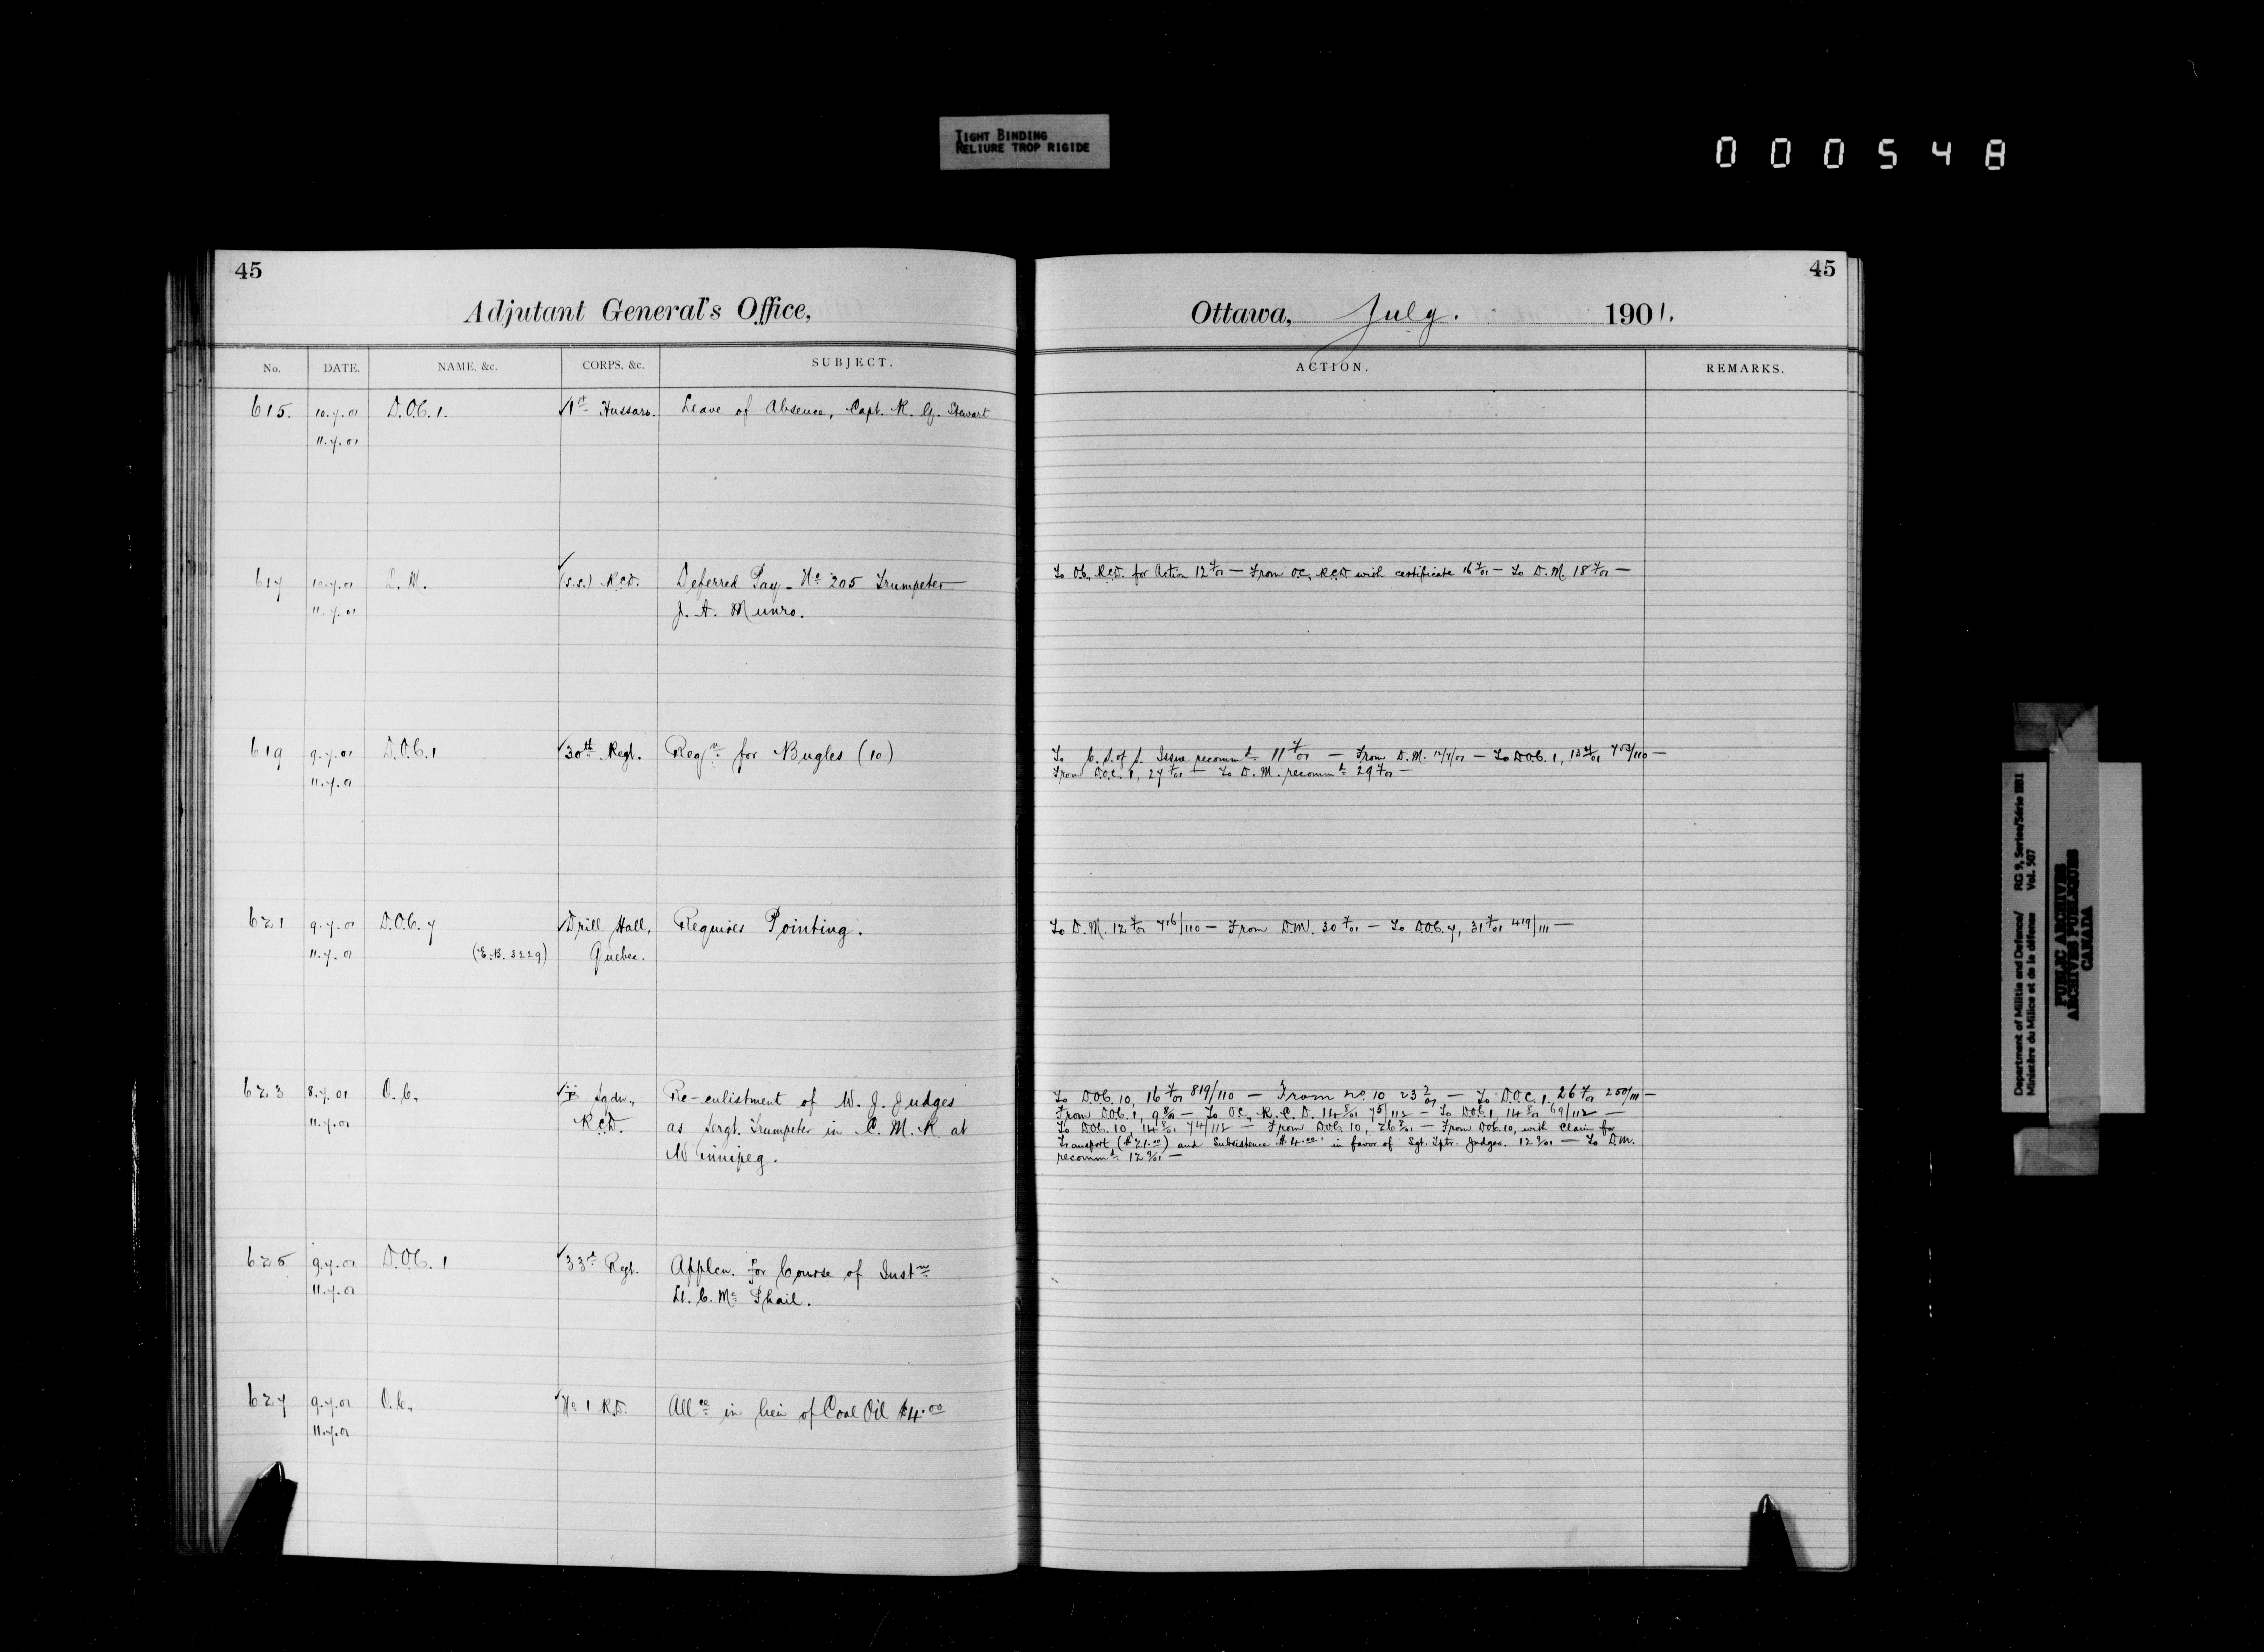 TIGHT BINDING
RELIURE TROP RIGIDE
000548
45
Adjutant General's Office,
No. DATE. NAME, &c. CORPS, &c. SUBJECT.
615. 10.7.01 D.O.C. 1. ✓1st Hussars. Leave of Absence, Capt. R. G. Stewart
11.7.01
617 10.7.01 D. M. ✓(S.S.) R.C.D. Deferred Pay - No 205 Trumpeter
11.7.01 J. A. Munro.
619 9.7.01 D.O.C. 1 ✓30th Regt. Reqn for Bugles (10)
11.7.01
621 9.7.01 D.O.C. 7 ✓Drill Hall, Requires Pointing.
11.7.01 (E.B. 3229) Quebec.
623 8.7.01 O.C., ✓ Sqdn., Re-enlistment of W. J. Judges
11.7.01 R.C.D. as Sergt. Trumpeter in C. M. R. at
Winnipeg.
625 9.7.01 D.O.C. 1 ✓33rd Regt. Applcn. for Course of Instn
11.7.01 Lt. C. Mc Phail.
627 9.7.01 O.C., ✓No 1 R.D. Allce in lieu of Coal Oil $4.00
11.7.01
45
Ottawa, July. 1901.
ACTION. REMARKS.
To O.C., R.C.D. for Action 12 7/01 — From O.C., R.C.D. with certificate 16 7/01 — To D.M. 18 7/01 —
To C.S. of S. Issue recommd 11 7/01 — From D.M. 12/7/01 — To D.O.C. 1, 13 7/01 703/110 —
From D.O.C. 1, 27 7/01 — To D.M. recommd 29 7/01 —
To D.M. 12 7/01 716/110 — From D.M. 30 7/01 — To D.O.C. 7, 31 7/01 419/111 —
To D.O.C. 10, 16 7/01 819/110 — From no. 10 23 7/01 — To D.O.C. 1. 26 7/01 250/111 —
From D.O.C. 1, 9 8/01 — To O.C., R.C.D. 14 8/01 75/112 — To D.O.C. 1, 14 8/01 69/112 —
To D.O.C. 10, 14 8/01 74/112 — From D.O.C. 10, 26 8/01 — From D.O.C. 10, with Claim for
Transport ($21.00) and Subsistence $4.00 in favor of Sgt. Tptr. Judges. 12 9/01 — To D.M.
recommd 12 9/01 —
Department of Militia and Defence/ RG 9, Series/Série IIB1
Ministère du Milice et de la défence Vol. 507
PUBLIC ARCHIVES
ARCHIVES PUBLIQUES
CANADA